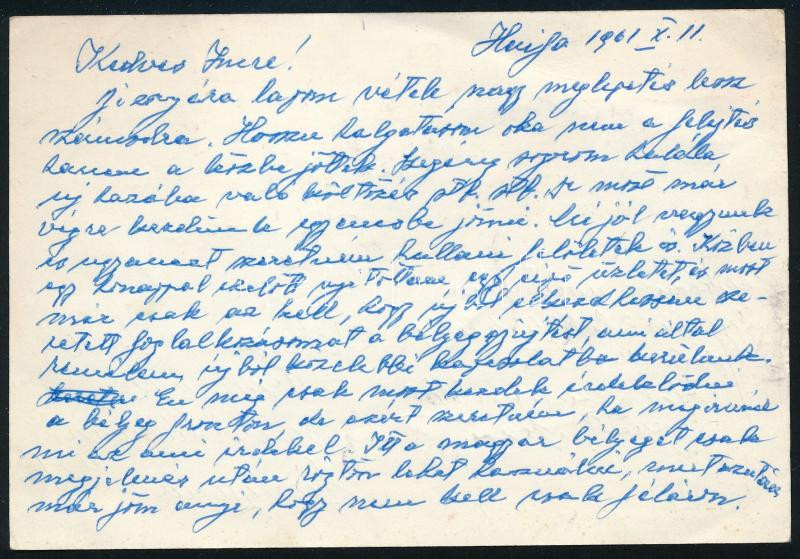 Haifa 1961 X. 11.
Kedves Imre!
vétek nagy meglepetés lesz
számodra. Hosszu halgatásom oka nem a felejtés
hanem a közbe jöttek. Szegény soprom halála
uj hazába valo költözés stb. stb. De most már
végre kezdünk egyenesbe jönni. Mi jól vagyunk
és ugyanezt szeretném hallani felöletek is. Közben
egy honappal ezelött nyitottam egy üzletet, és most
már csak az kell, hogy uj ból elkezdhessem sze-
retett foglalkozásomat a bélyeggyüjtést, ami által
remélem ujból közelebbi kapcsolatba kerülünk.
Én még csak most kezdek érdeklödni
a bélyeg fronton, de azért szeretném, ha megirnád
mi az ami érdekel. Itt a magyar bélyeget csak
megjelenés után rögtön lehet használni, mert azután
már jön annyi, hogy nem kell csak féláron.